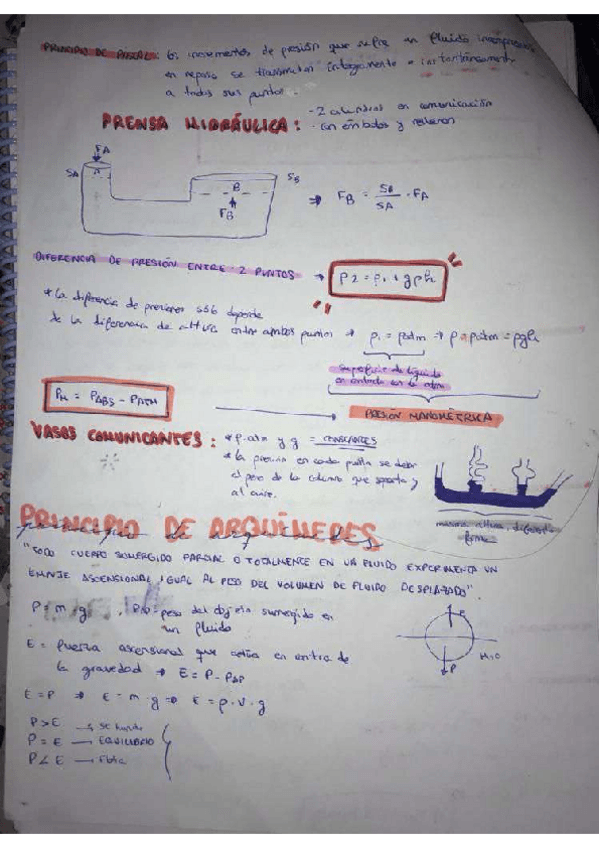 PRINCIPIO DE PASCAL: los incrementos de presión que sufre un fluido incompresible
en reposo se transmiten íntegramente e instantáneamente
a todos sus puntos.
PRENSA HIDRÁULICA:
- 2 cilindros en comunicación
- con émbolos y rellenos
FA
SA
A
B
SB
FB
⇒ FB = SB/SA · FA
DIFERENCIA DE PRESIÓN ENTRE 2 PUNTOS → P2 = P1 + gρh
* La diferencia de presiones solo depende
de la diferencia de altura entre ambos puntos → P1 = Patm → P - Patm = ρgh
superficie de líquido
en contacto con la atm
PM = PABS - PATM → PRESIÓN MANOMÉTRICA
VASOS COMUNICANTES:
* P.atm y g = CONSTANTES
* la presión en cada punto se debe
al peso de la columna que soporta y
al aire.
misma altura, diferente
forma
PRINCIPIO DE ARQUÍMEDES
principio de arquímedes
"TODO CUERPO SUMERGIDO PARCIAL O TOTALMENTE EN UN FLUIDO EXPERIMENTA UN
EMPUJE ASCENSIONAL IGUAL AL PESO DEL VOLUMEN DE FLUIDO DESPLAZADO".
P = m · g , PAP = peso del objeto sumergido en
un fluido
E = fuerza ascensional que actúa en contra de
la gravedad → E = P - PAP
P
E = P ⇒ E = m · g ⇒ E = ρ · V · g
P > E → se hunde
P = E → EQUILIBRIO
P < E → Flota